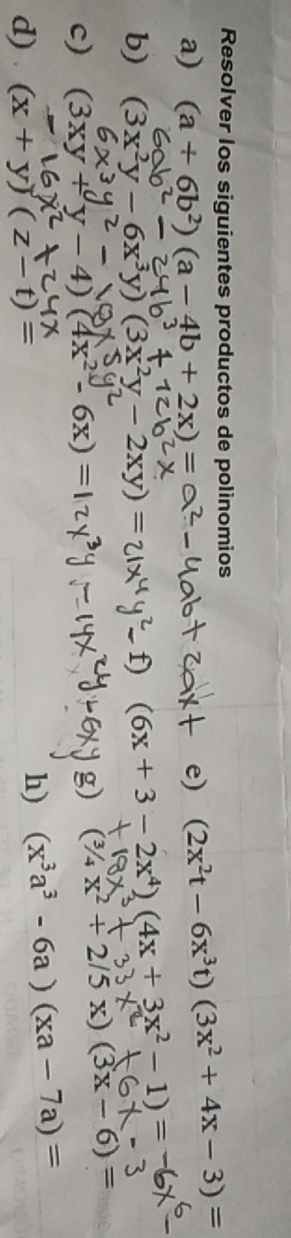 Resolver los siguientes productos de polinomios
a) (a + 6b²) (a – 4b + 2x) = a² - 4ab + 2ax +
6ab² - 24b³ + 12b²x
b) (3x²y – 6x³y) (3x²y – 2xy) = 21x⁴y² -
6x³y² - 18x⁵y²
c) (3xy + y – 4) (4x² - 6x) = 12x³y - 14x²y - 6xy
- 16x² + 24x
d) (x + y) ( z – t) =
e) (2x²t – 6x³t) (3x² + 4x – 3) =
f) (6x + 3 – 2x⁴) (4x + 3x² – 1) = -6x⁶ -
+ 18x³ + 33x² + 6x - 3
g) (³/₄ x² + 2/5 x) (3x – 6) =
h) (x³a³ - 6a ) (xa – 7a) =